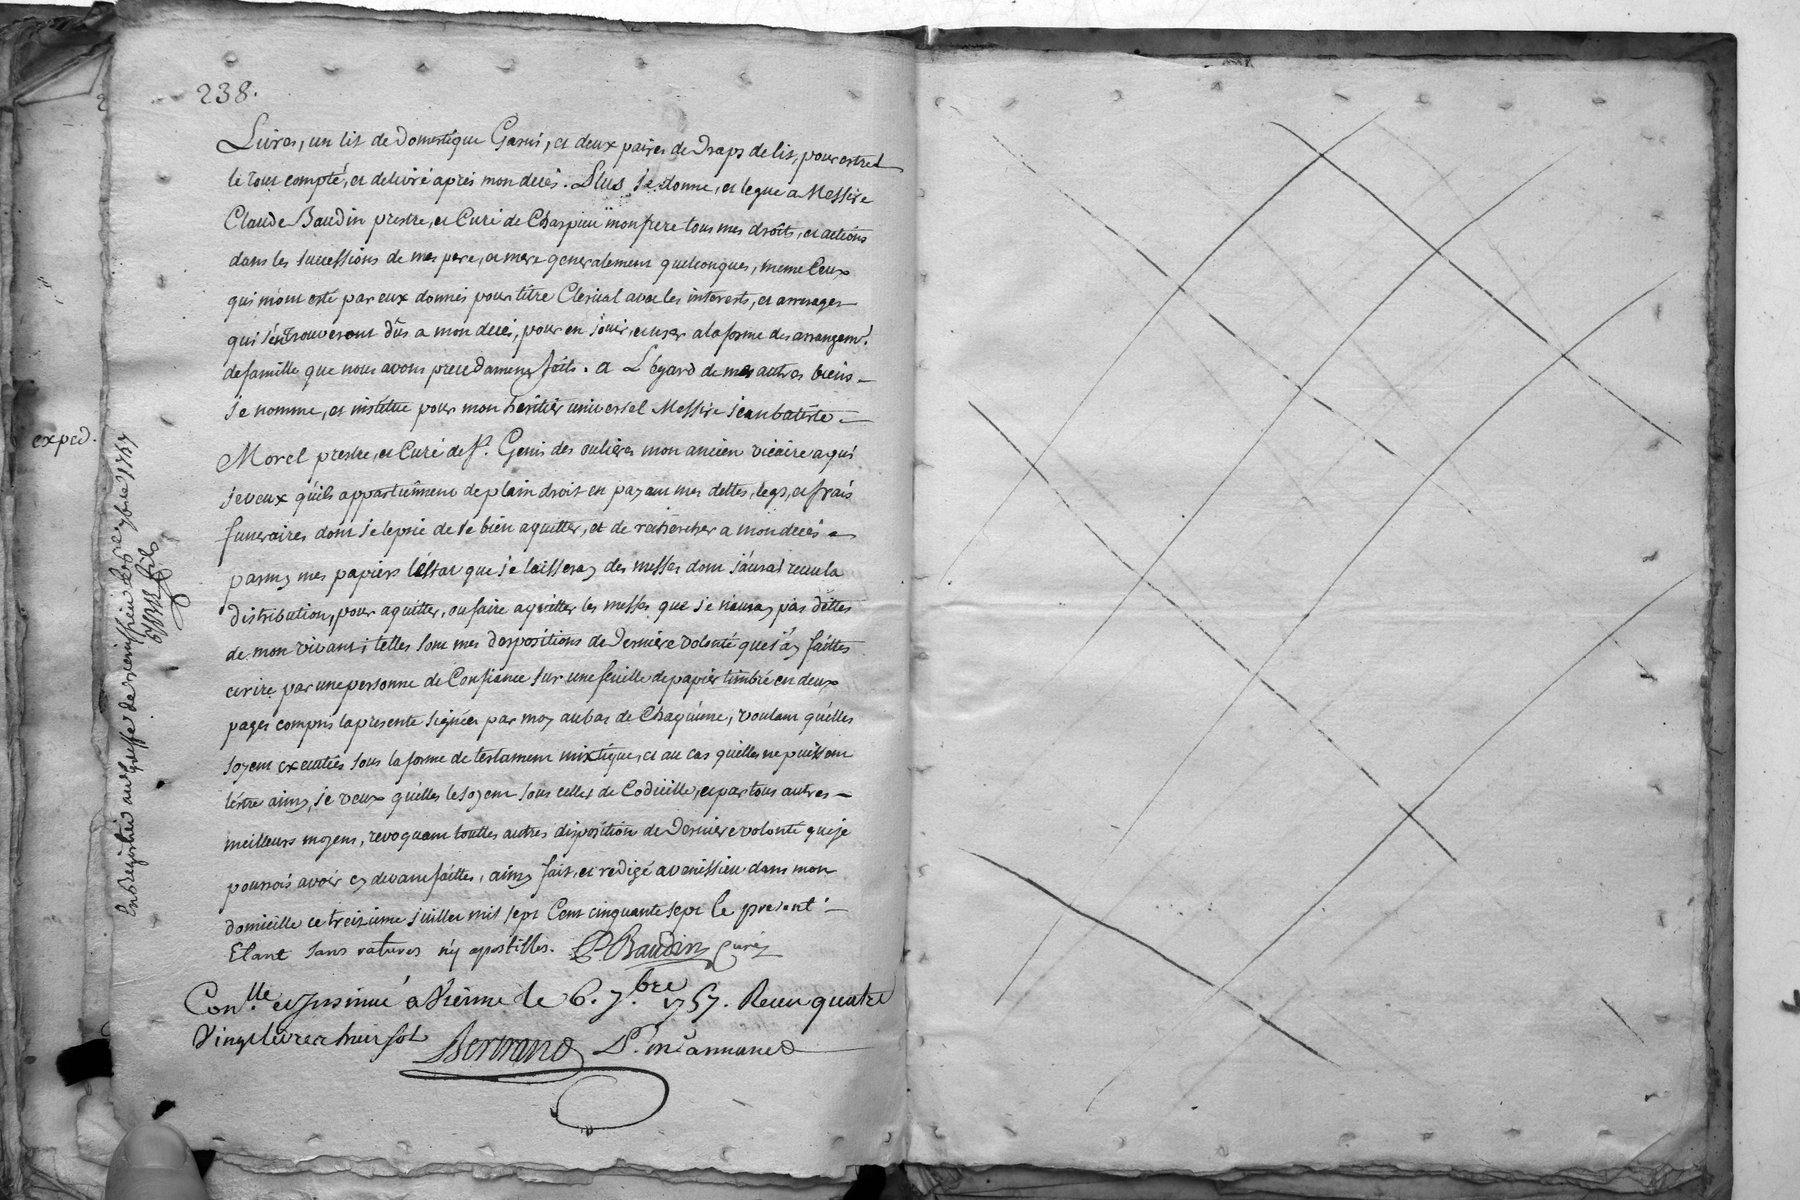 238.
Livres, un lit de domestique Garni, et deux paires de draps de lit, pour estre
le tout compté, et delivré apres mon deces. Plus je donne, et legue a Messire
Claude Baudin prestre, et Curé de Chaspieu mon frere tous mes droits, et actions
dans les successions de mes pere, et mere generalement quelconques, meme Ceux
qui m'ont esté par eux donnés pour titre Clerical avec les interests, et arrerages
qui s'en trouveront dûs a mon deces, pour en jouir, et user a la forme des arrangemt.
de famille que nous avons precedament faits. a L'égard de mes autres biens
je nomme, et institue pour mon heritier universel Messire jean batiste
Morel prestre, et Curé de St. Genis des oulieres mon ancien vicaire a qui
je veux qu'ils appartiennent de plain droit en payant mes dettes, legs, et frais
funeraires dont je le prie de se bien aquitter, et de rechercher a mon deces
parmy mes papiers l'estat que je laisseray des messes dont j'auray recu la
distribution, pour aquitter, ou faire aquitter les messes que je n'auray pas dittes
de mon vivant; telles sont mes dispositions de derniere volonté que j'ay faittes
ecrire par une personne de Confiance sur une feuille de papier timbré en deux
pages compris la presente signées par moy au bas de Chaqu'une, voulant qu'elles
soyent executées sous la forme de testament mixtique, et au cas qu'elles ne puissent
l'estre ainsy, je veux qu'elles le soyent sous celles de Codicille, et par tous autres
meilleurs moyens, revoquant touttes autres disposition de derniere volonté que je
pourrois avoir cy devant faittes, ainsy fait, et redigé a venissieu dans mon
domicille ce treizieme juillet mil sept Cent cinquante sept le present
Etant sans ratures n'y apostilles. Baudin Curé
Conlle et Insinué a Vienne le 6. 7.bre 1757. Receu quatre
Vingt livre et huit sol Bertrand
exped.
Enregistré au greffe de 1757
fils